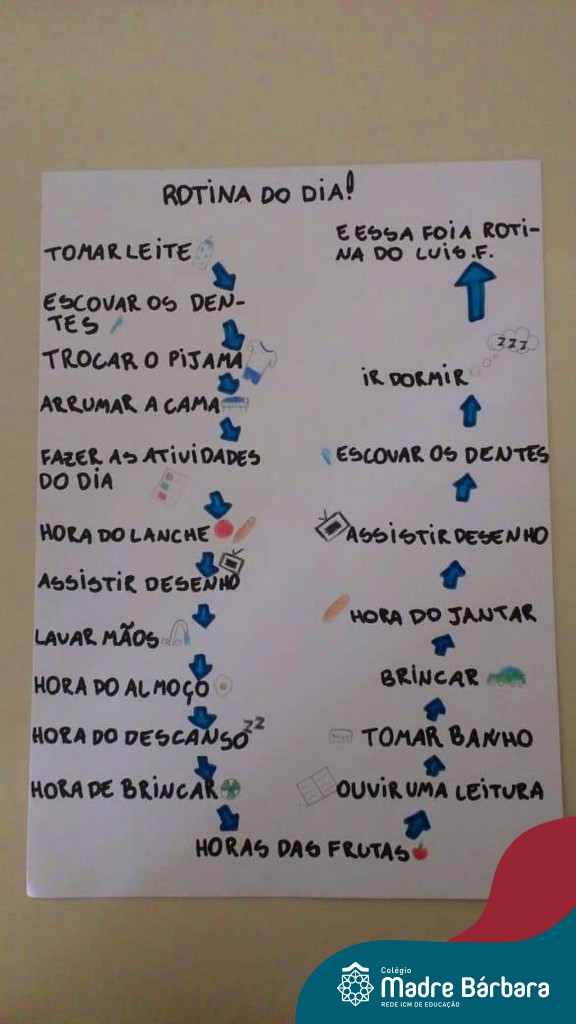 ROTINA DO DIA!
TOMAR LEITE
ESCOVAR OS DEN-
TES
TROCAR O PIJAMA
ARRUMAR A CAMA
FAZER AS ATIVIDADES
DO DIA
HORA DO LANCHE
ASSISTIR DESENHO
LAVAR MÃOS
HORA DO ALMOÇO
HORA DO DESCANSO
ZZ
HORA DE BRINCAR
HORAS DAS FRUTAS
OUVIR UMA LEITURA
TOMAR BANHO
BRINCAR
HORA DO JANTAR
ASSISTIR DESENHO
ESCOVAR OS DENTES
IR DORMIR
ZZZ
E ESSA FOI A ROTI-
NA DO LUIS.F.
Colégio
Madre Bárbara
REDE ICM DE EDUCAÇÃO